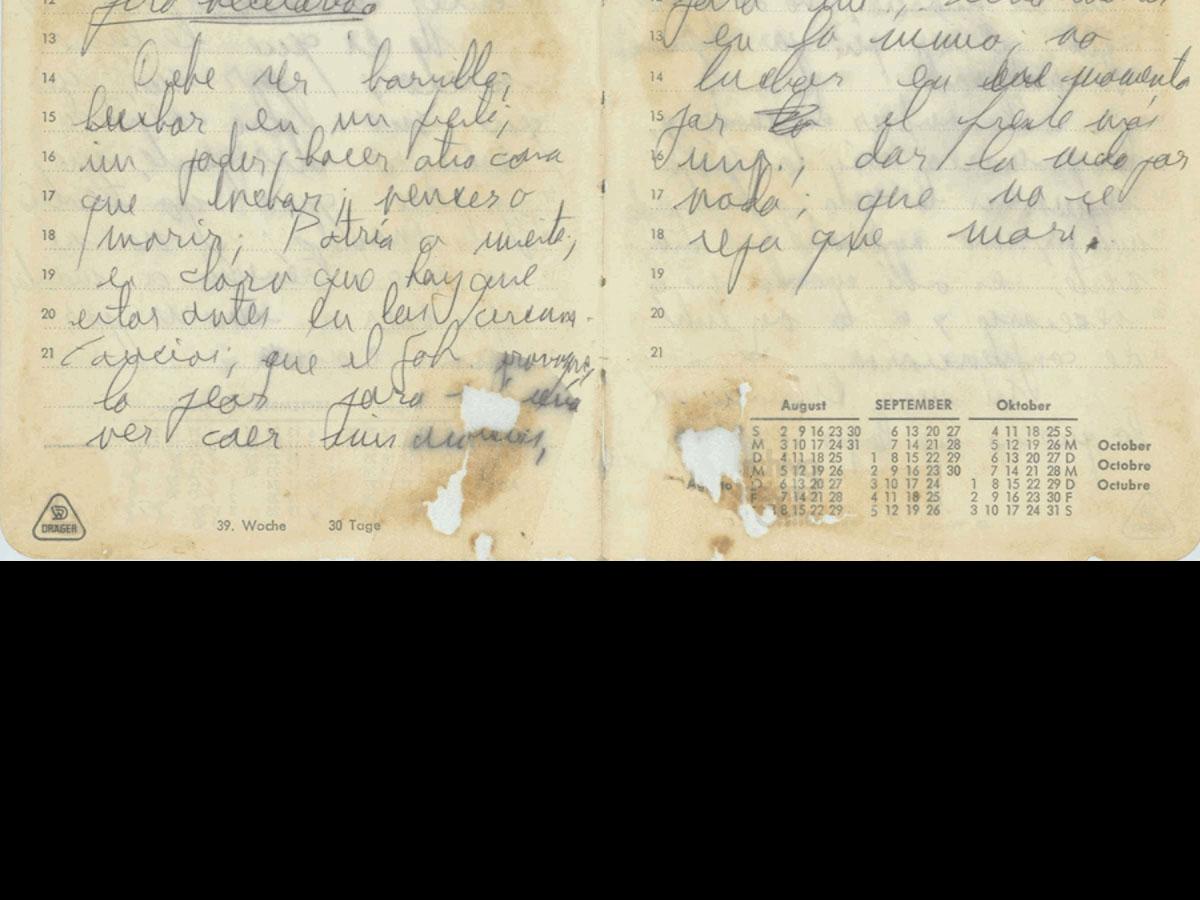 12 pero necesario
13
14 Debe ser barrilla;
15 luchar en un frente;
16 un poder, hacer otra cosa
17 que luchar; vencer o
18 morir; Patria o muerte;
19 es claro que hay que
20 estar antes en las circuns-
21 tancias; que el Gob.
lo peor para
ver caer sus
DRÄGER
39. Woche 30 Tage
13 en la mano; no
14 luchar en ese momento
15 por el frente más
16 imp.; dar la vida por
17 nada; que no se
18 sepa que morí.
19
20
21
August SEPTEMBER Oktober
S 2 9 16 23 30 6 13 20 27 4 11 18 25 S
M 3 10 17 24 31 7 14 21 28 5 12 19 26 M October
D 4 11 18 25 1 8 15 22 29 6 13 20 27 D
M 5 12 19 26 2 9 16 23 30 7 14 21 28 M Octobre
D 6 13 20 27 3 10 17 24 1 8 15 22 29 D Octubre
F 7 14 21 28 4 11 18 25 2 9 16 23 30 F
8 15 22 29 5 12 19 26 3 10 17 24 31 S